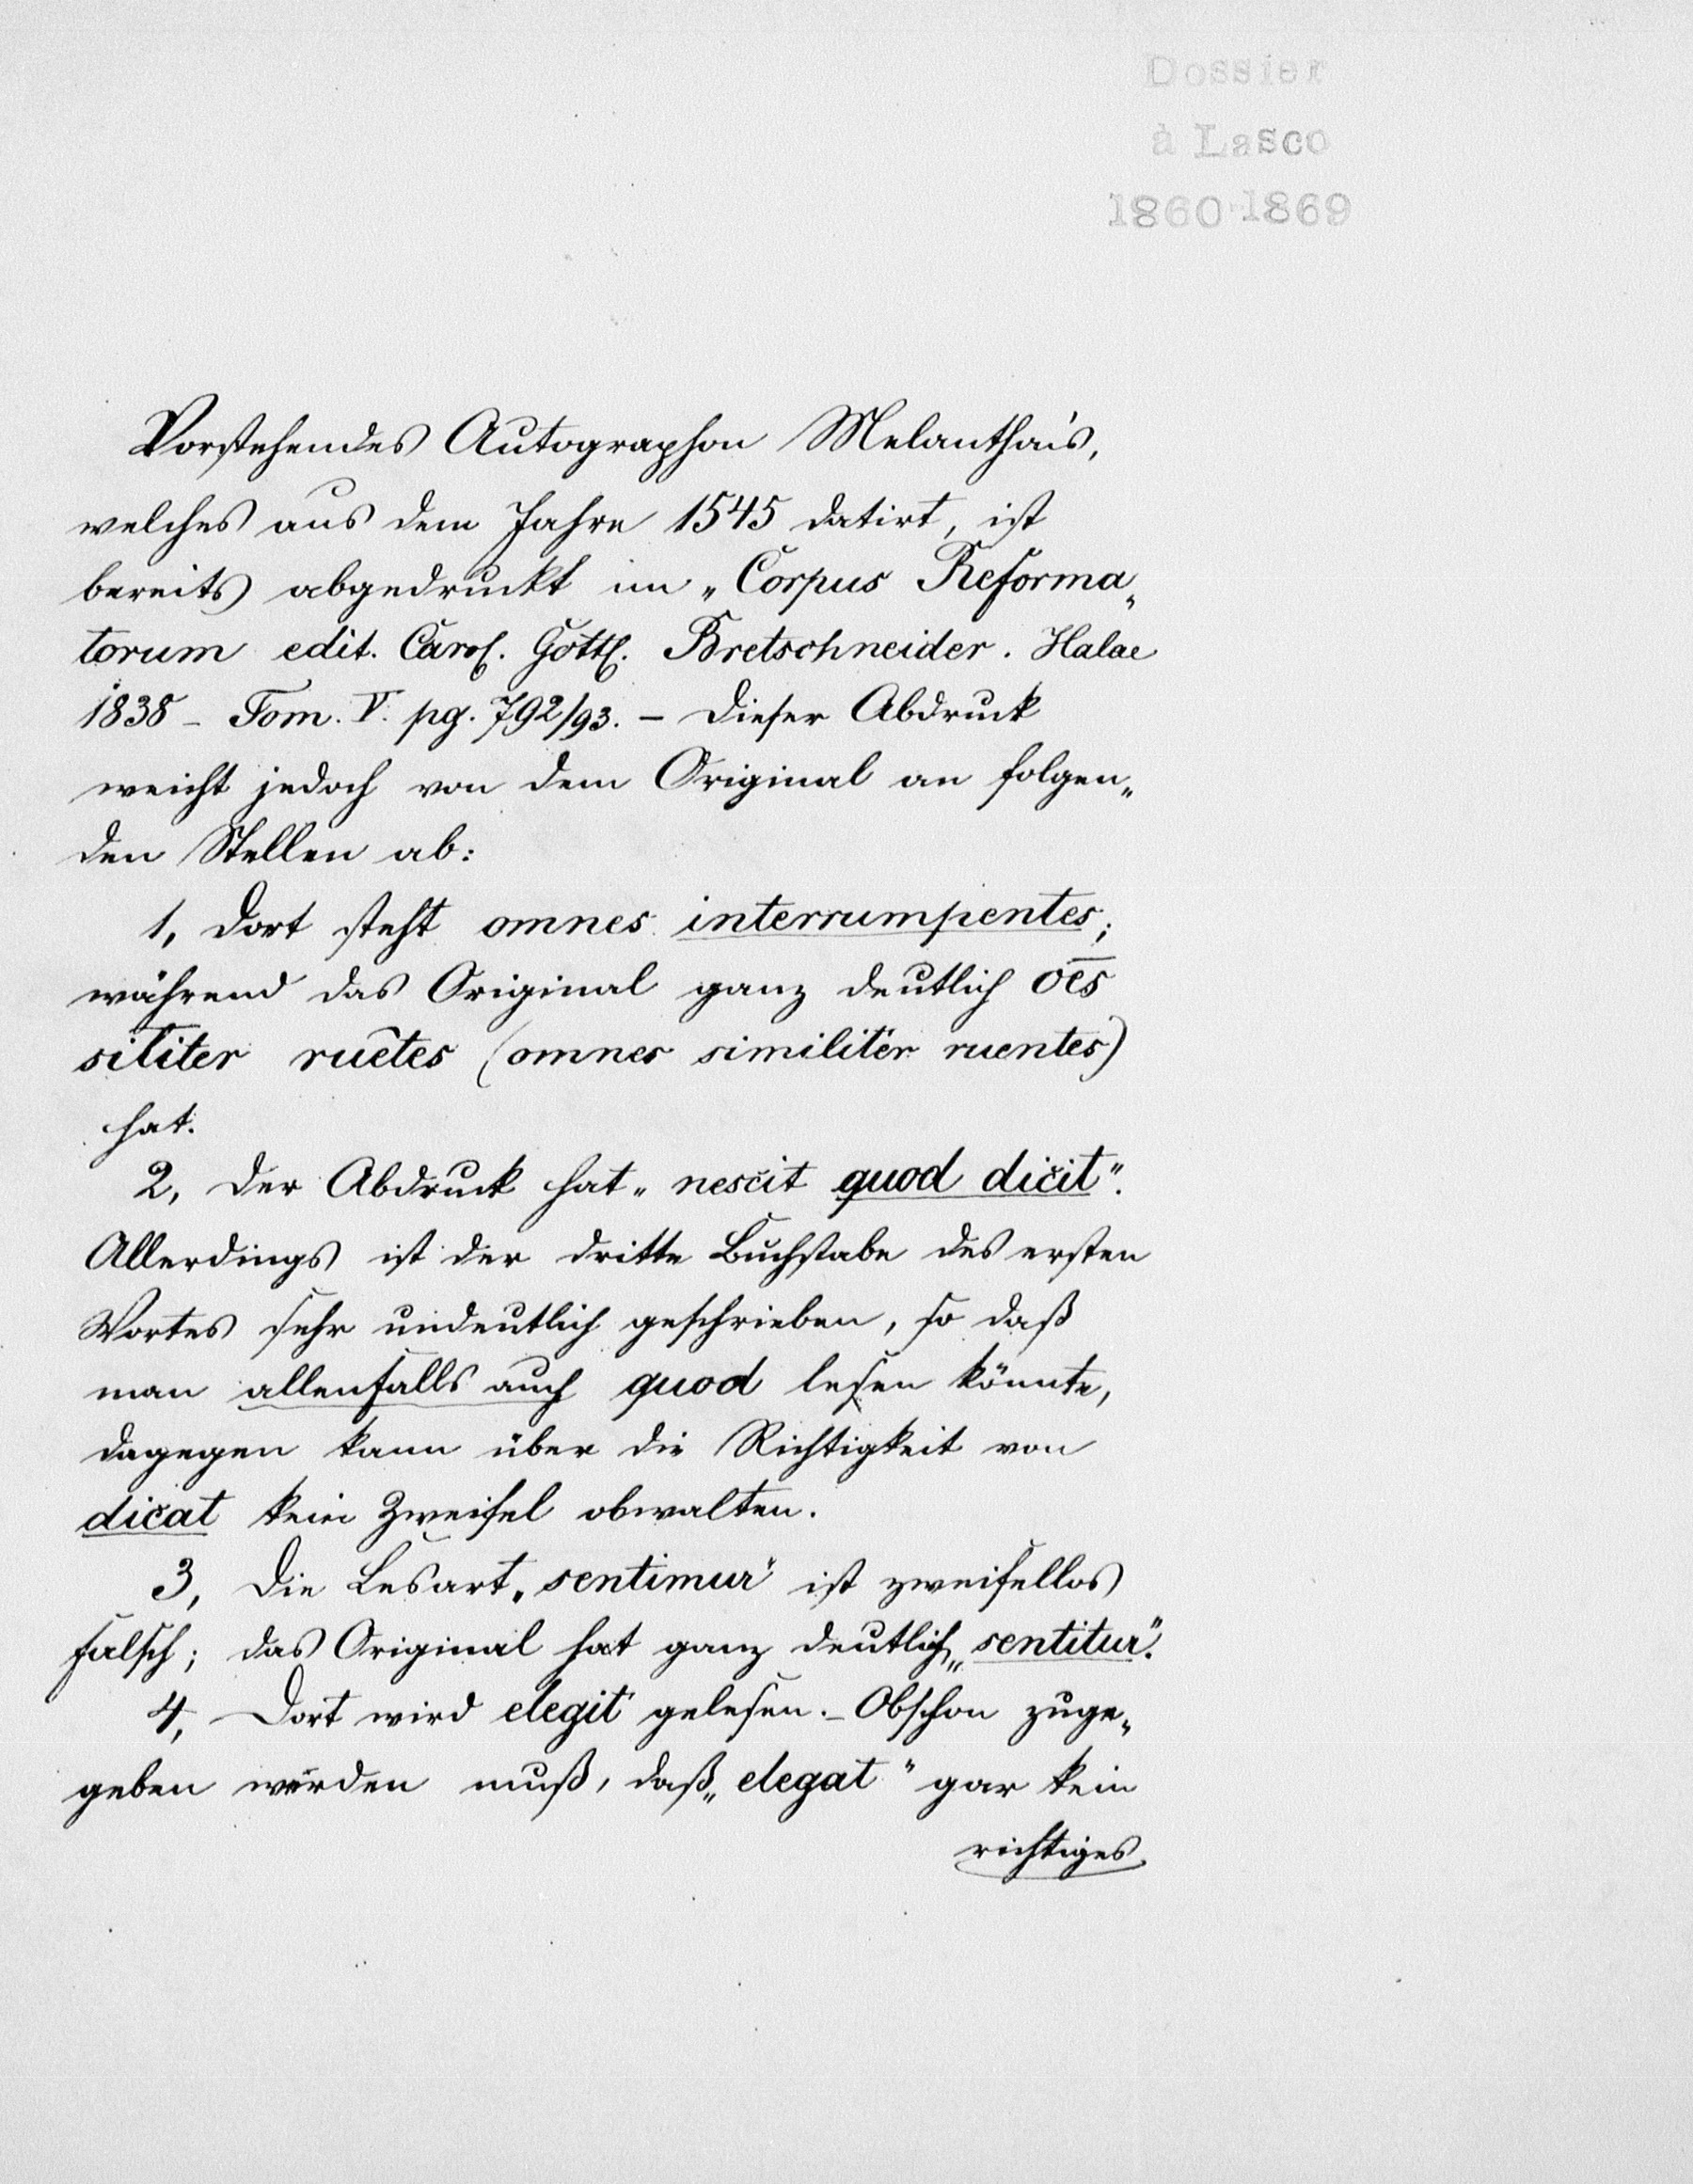 Dossier
à Lasco
1860-1869
Vorstehendes Autographon Melanthon's,
welches aus dem Jahre 1545 datirt, ist
bereits abgedruckt im „Corpus Reforma„
torum edit. Carol. Gottl. Bretschneider. Halae
1838 - Tom. V. pg. 792/93. - Dieser Abdruck
weicht jedoch von dem Original an folgen„
den Stellen ab:
1, Dort steht omnes interrumpentes;
während das Original ganz deutlich o̅e̅s
siliter ruētes (omnes similiter ruentes)
hat.
2, Der Abdruck hat „nescit quod dicit".
Allerdings ist der dritte Buchstabe des ersten
Wortes sehr undeutlich geschrieben, so daß
man allenfalls auch quod lesen könnte,
dagegen kann über die Richtigkeit von
dicat kein Zweifel obwalten.
3, Die Lesart „sentimur" ist zweifellos
falsch; das Original hat ganz deutlich „sentitur".
4, Dort wird elegit gelesen. - Obschon zuge„
geben werden muß, daß „elegat" gar kein
richtiges